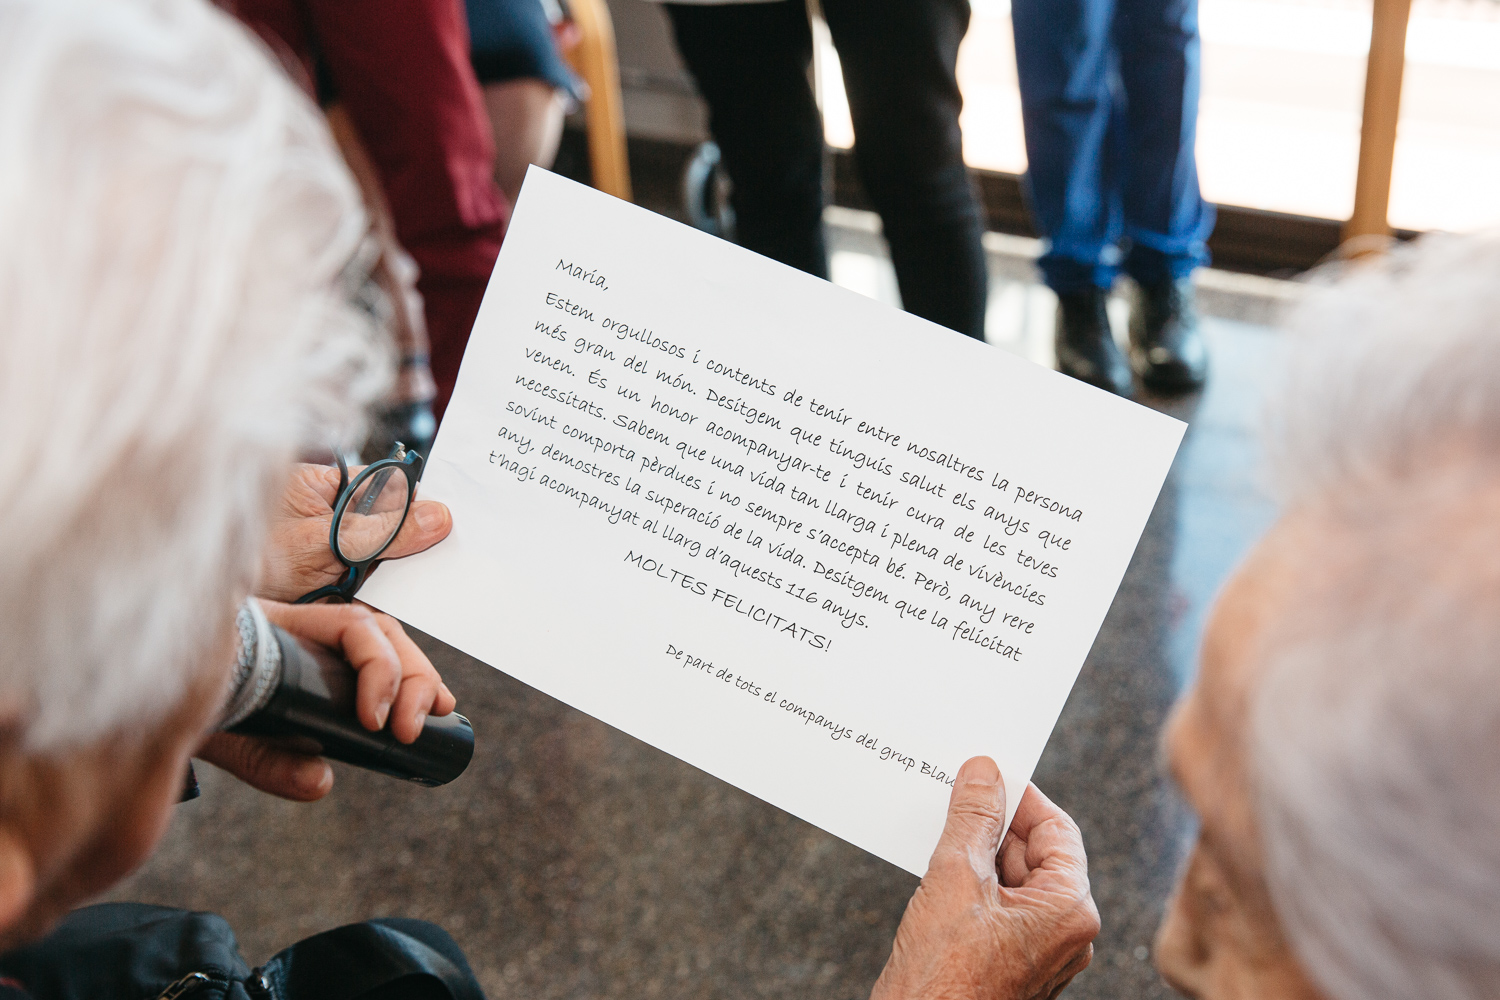 Maria,
Estem orgullosos i contents de tenir entre nosaltres la persona
més gran del món. Desitgem que tinguis salut els anys que
venen. És un honor acompanyar-te i tenir cura de les teves
necessitats. Sabem que una vida tan llarga i plena de vivències
sovint comporta pèrdues i no sempre s'accepta bé. Però, any rere
any, demostres la superació de la vida. Desitgem que la felicitat
t'hagi acompanyat al llarg d'aquests 116 anys.
MOLTES FELICITATS!
De part de tots el companys del grup Blau